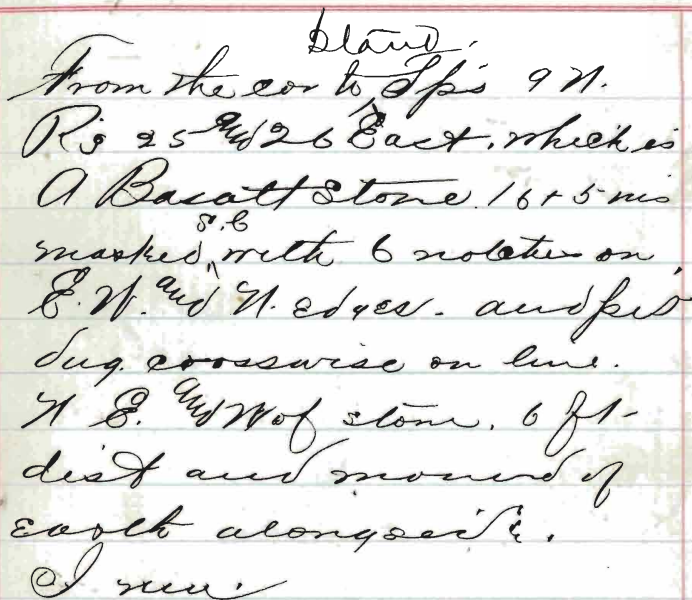 stand.
From the cor to Tps 9 N.
Rs 25 and 26 East, which is
A Basalt Stone 16 + 5 ins
S.C
marked with 6 notches on
E. W. and N. edges. and pits
dug crosswise on line.
N E. and W of stone. 6 ft
dist and mound of
earth alongside.
I run.